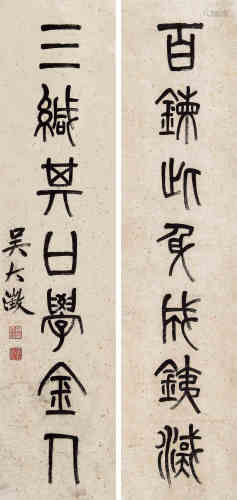 百鍊此身成鐵漢
三緘其口學金人
吳大澂